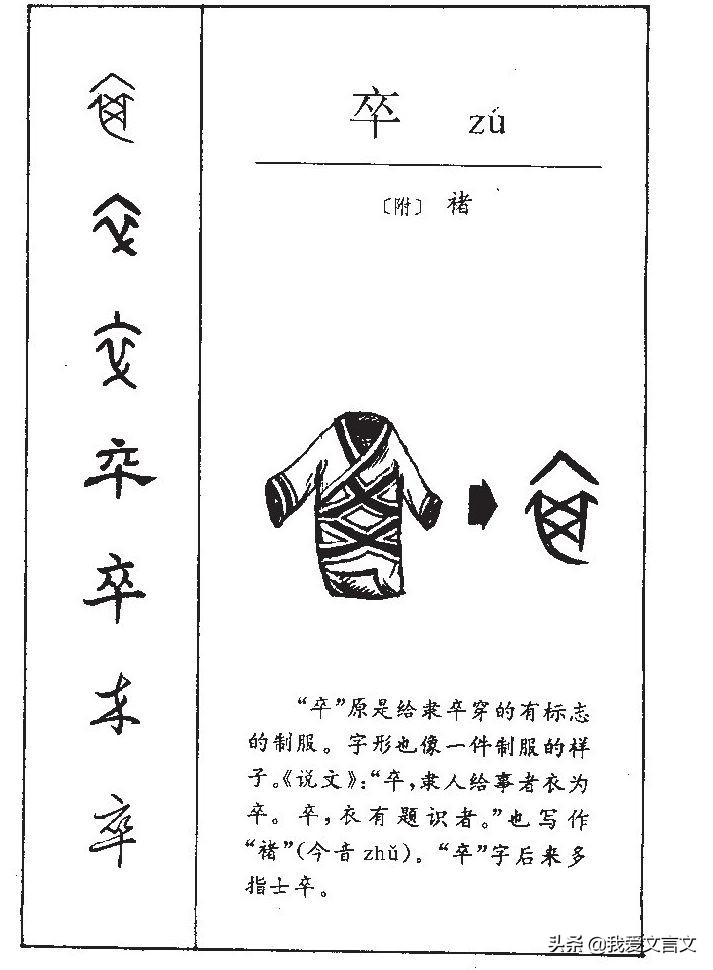 卒 zú
〔附〕 褚
“卒”原是给隶卒穿的有标志
的制服。字形也像一件制服的样
子。《说文》:“卒,隶人给事者衣为
卒。卒,衣有题识者。”也写作
“褚”(今音 zhǔ)。“卒”字后来多
指士卒。
卒
卒
卒
头条 @我爱文言文